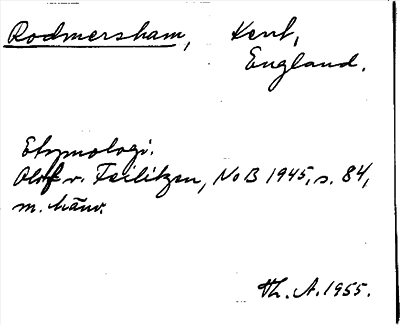 Rodmersham, Kent,
England.
Etymologi.
Olof v. Feilitzen, NoB 1945, s. 84,
m. hänv.
Th. A. 1955.